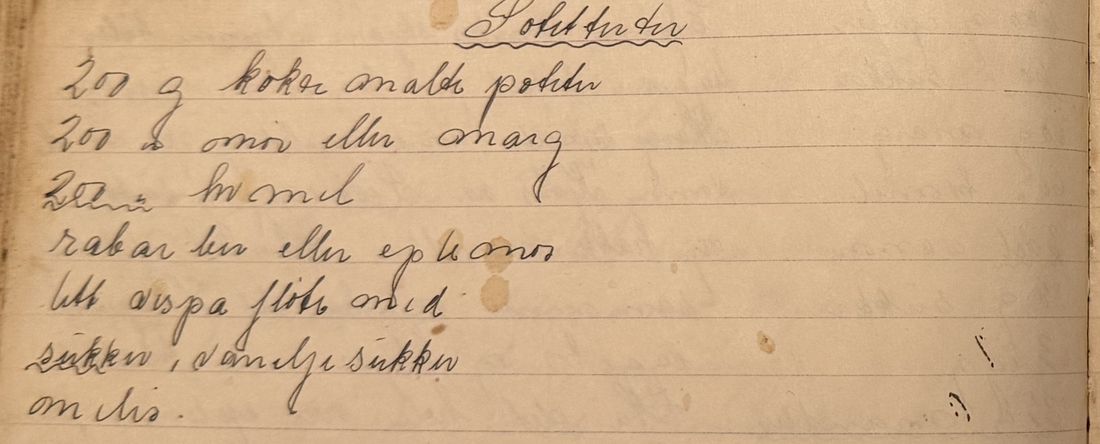 Potetterter
200 g kokte malte poteter
200 " smør eller marg
200 " hv mel
rabarber eller eplemos
litt vispa fløte med
sukker, vanilje sukker
melis.